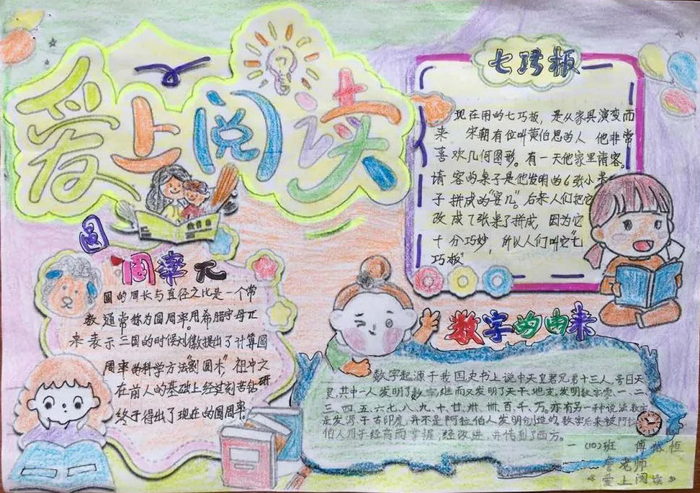 爱上阅读
七巧板
现在用的七巧板，是从家具演变而
来 宋朝有位叫黄伯思的人 他非常
喜欢几何图形。有一天他家里请客。
请客的桌子是他发明的6张小
子拼成的"宴几"后来人们把它
改成了7张来了拼成，因为它
十分巧妙，所以人们叫它"七
巧板"
教育部
圆
周率
圆的周长与直径之比是一个常
数 通常称为圆周率用希腊字母π
来表示 三国的时候刘徽提出了计算圆
周率的科学方法"割圆术" 祖冲之
在前人的基础上经过刻苦钻研
终于得出了现在的圆周率
数字的由来
数字起源于我国史书上说中天皇君兄弟十三人，号曰天
皇，其中一人发明了数字继而又发明了天干地支，发明数字零.一.二
三.四.五.六.七.八.九.十.廿.卅.卌.百.千.万.亦有另一种说法数字
发源于古印度，并不是阿拉伯人发明创造的数字后来被阿拉
伯人用于经商而掌握，经改进，并传到了西方。
(10)班 傅
老师
《爱上阅读》